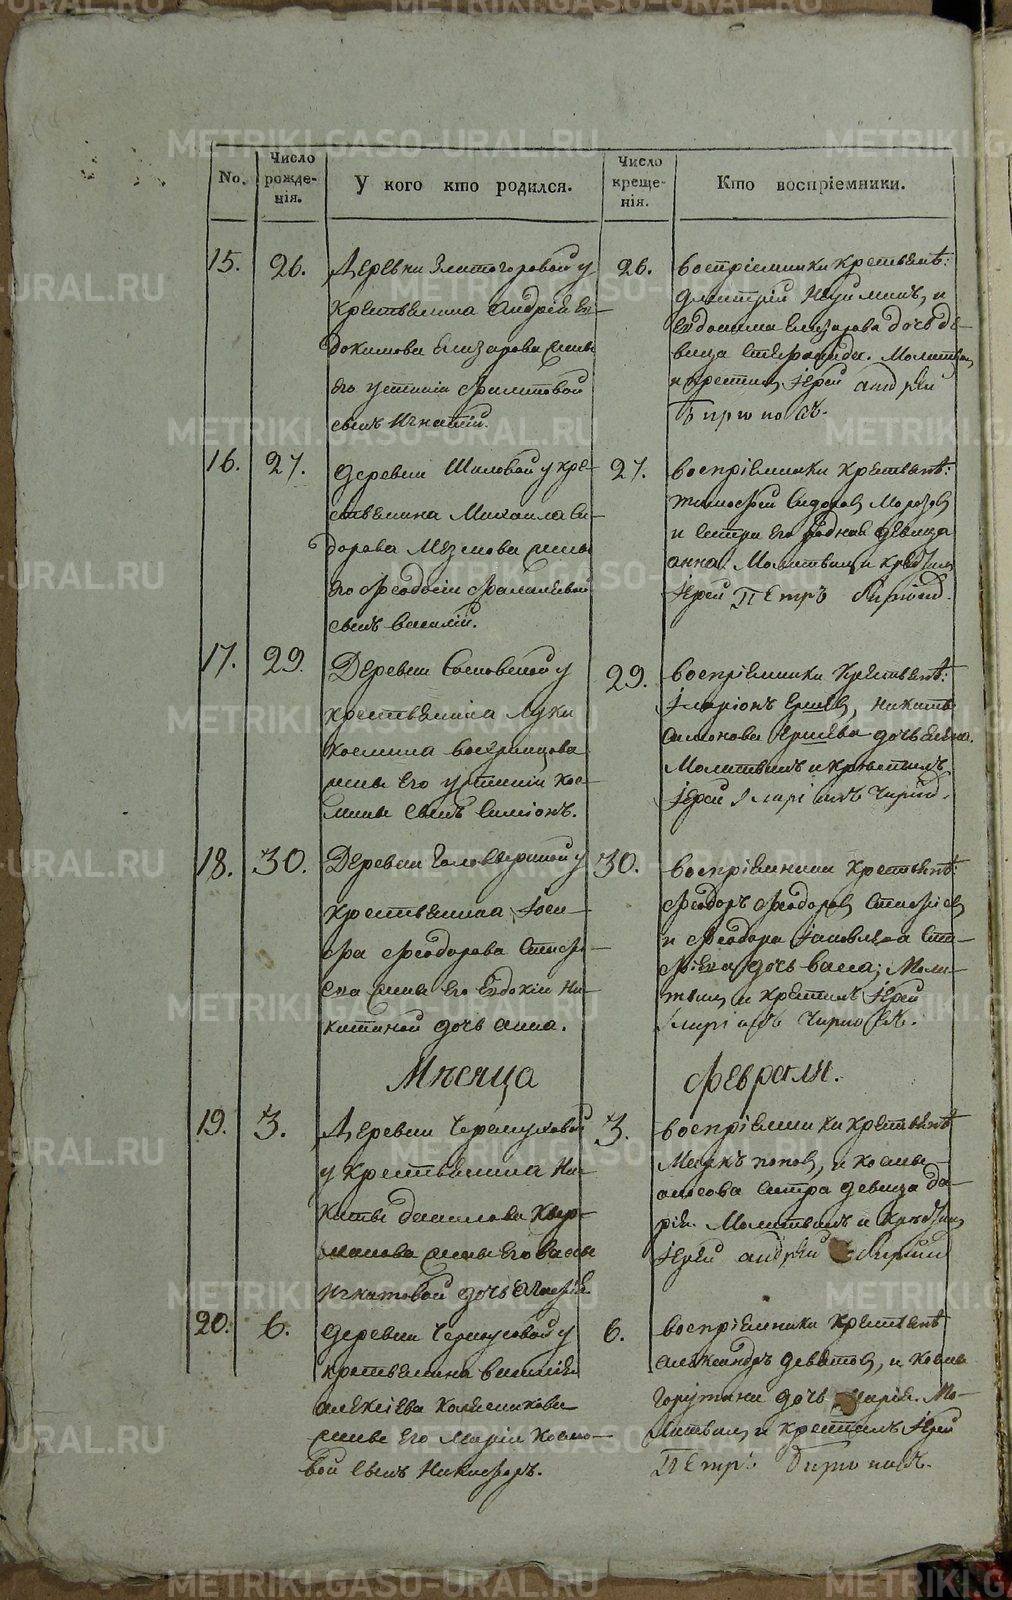 No.
Число рожде-
нія.
У кого кто родился.
Число креще-
нія.
Кто воспріемники.
15. 26.
Деревни Златогоровой у
крестьянина Андрея Ев-
докимова Елизарова жены
его Устиніи Филиповой
сынъ Игнатій.
26.
воспріемники крестьянѣ:
Димитрій Наумин, и
Евдокима Елизарова дочь дѣ-
вица Степанида. Молитвил,
и крестил, Іерей Андрей
16. 27.
деревни Шиловой у кре-
стьянина Михаила Си-
дорова Мезенова жены
его Феодосіи
сынъ Василій.
27.
воспріемники крестьянѣ:
Тимофей Сидоров Морозов
и сестра его родная девица
Анна. Молитвил, и крестил,
Іерей Петръ
17. 29.
Деревни Сосновской у
крестьянина Луки
Космина
жены его Устиніи Кос-
мины сынъ Симіонъ.
29.
воспріемники крестьянѣ:
Іларіонъ Ершев, Никиты
Симонова Ершева дочь Елена.
Молитвилъ и крестилъ
Іерей Іларіонъ
18. 30.
Деревни у
крестьянина Іоси-
фа Феодорова
жены его Евдокіи Ни-
китиной дочь Анна.
30.
воспріемники крестьянѣ:
Феодоръ Феодоров
и Феодора Іаковлева
дочь Васса; Моли-
твил, и крестилъ Іерей
Іларіонъ
Мѣсяца Февраля.
19. 3.
Деревни Черемуховой
у крестьянина Ни-
киты Данилова
жены его Вассы
Игнатовой дочь Агафія
3.
воспріемники крестьянѣ
Маркъ Попов, и Космы
сестра девица Да-
рія. Молитвилъ и крестил,
Іерей Андрей
20. 6.
деревни Черноусовой у
крестьянина Василія
Алексіева Колесникова
жены его Маріи Космо-
вой сынъ Никифоръ.
6.
воспріемники крестьянѣ
Александръ Девятов, и Космы
дочь Марія. Мо-
литвил, и крестилъ Іерей
Петръ
METRIKI.GASO-URAL.RU